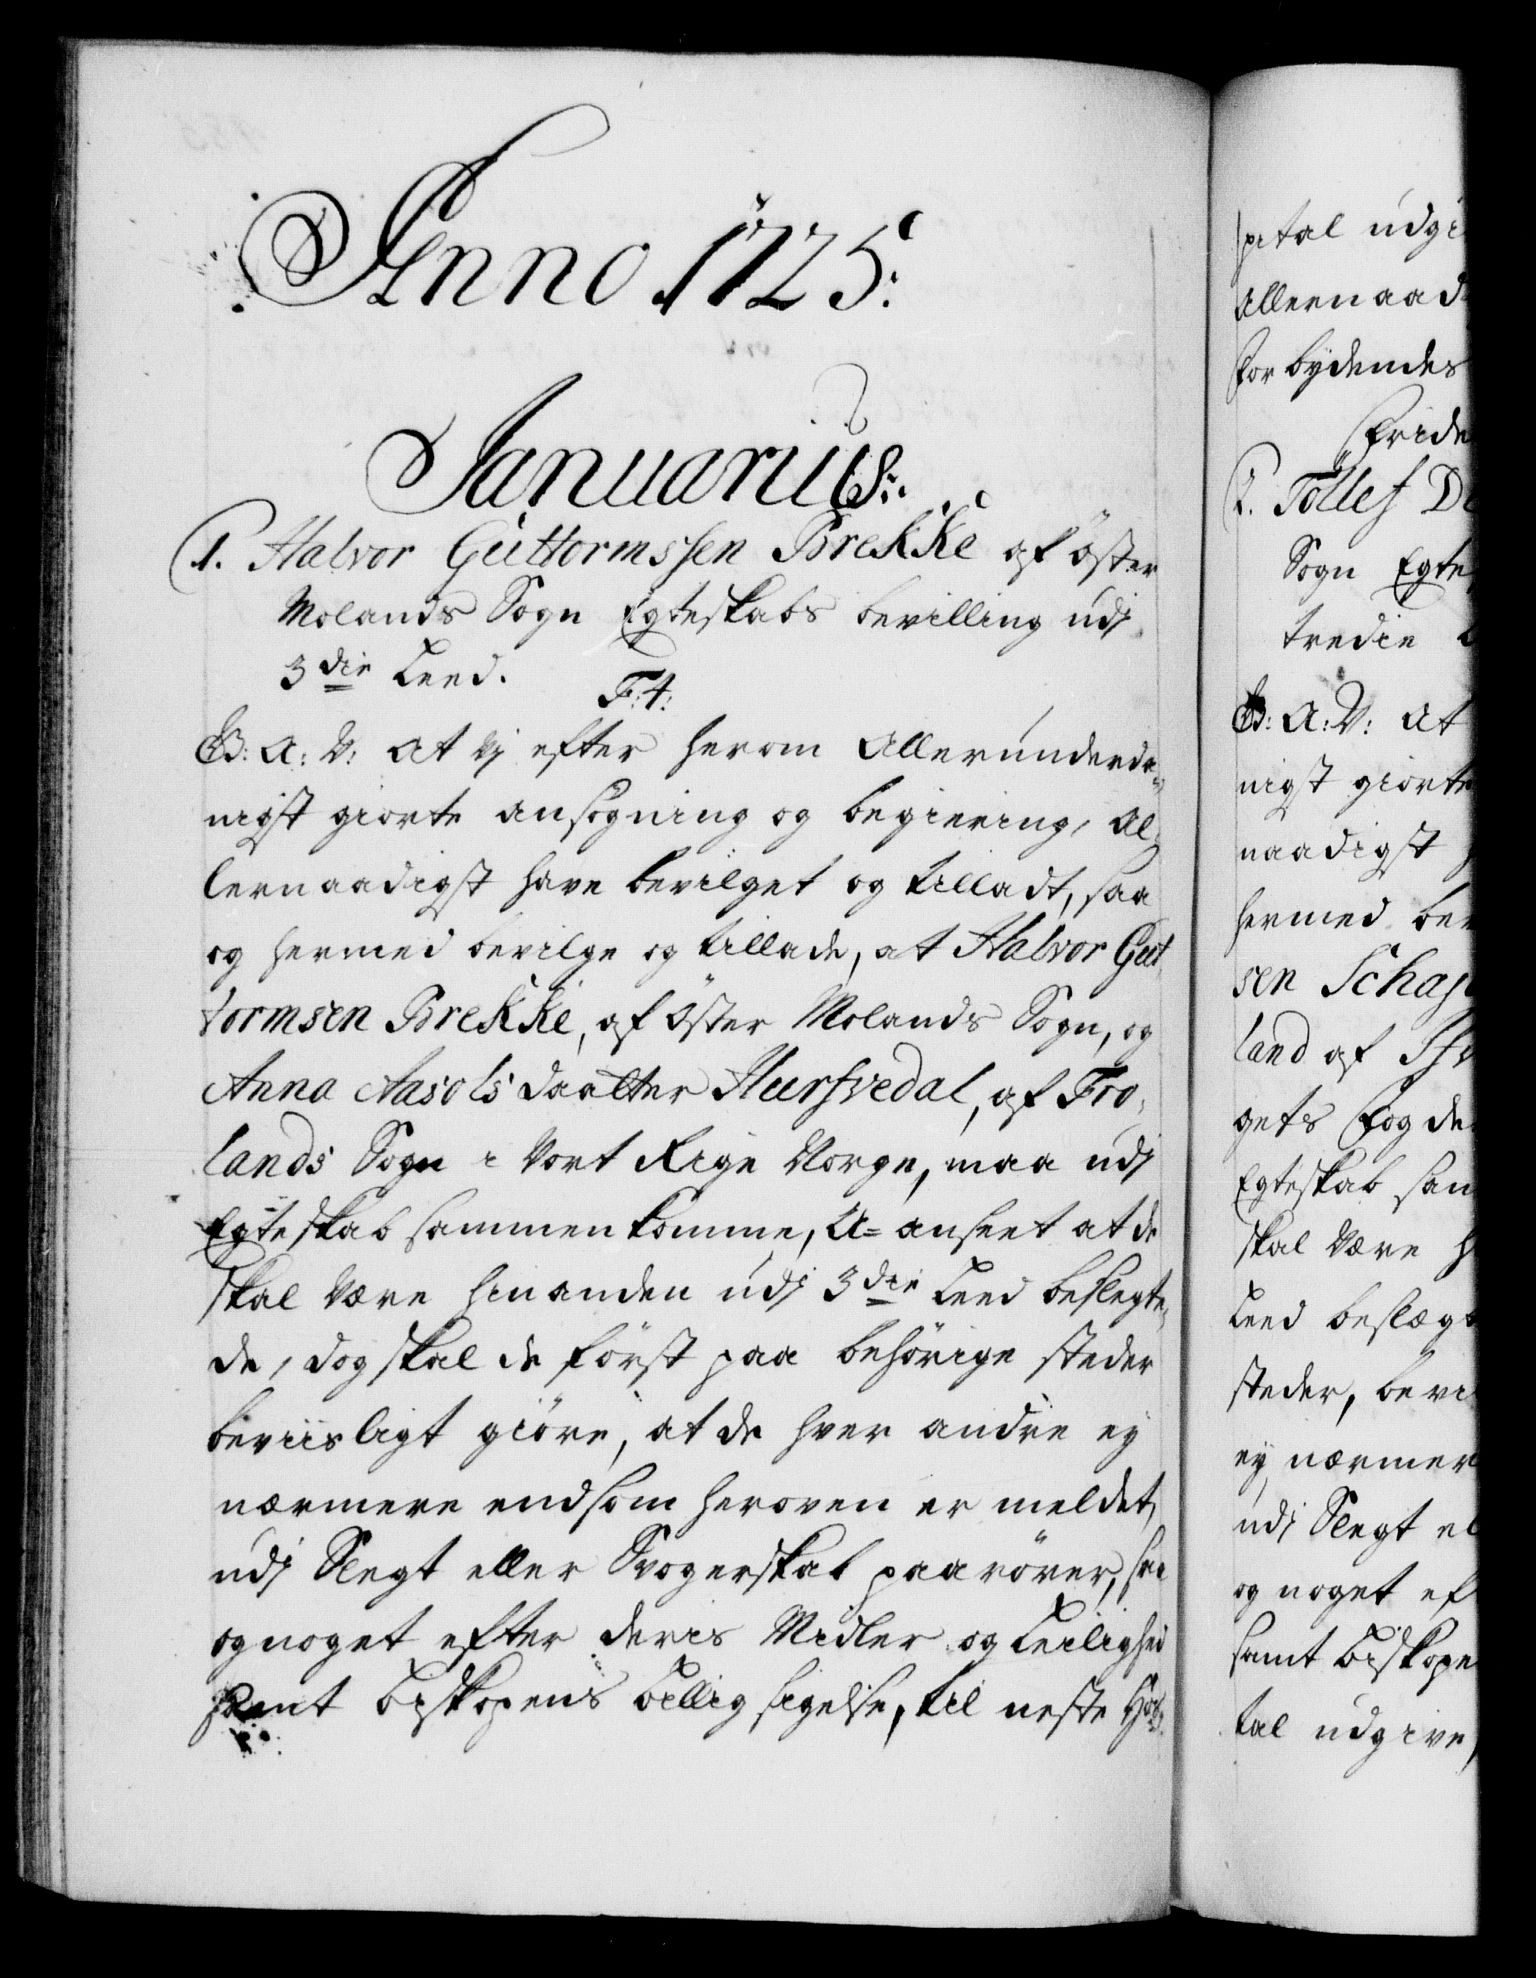 Anno 1725.
Januarius.
1. Halvor Guttormssen Brekke af Öster
Molands Sogn Egteskabs bevilling udj
3die Leed.
F: 4:
G: A: V: At Vj efter herom Allerunderda-
nigst giorte ansøgning og begiering, Al-
lernaadigst have bevilget og tilladt, saa
og hermed bevilge og tillade, at Halvor Gut-
tormsen Brekke, af Öster Molands Sogn, og
Anna Aasols daatter Hursvedal, af Fro-
lands Sogn i Vort Rige Norge, maa udj
Egteskab sammenkomme, U-anseet at de
skal være hinanden udj 3die Leed beslegte-
de, dog skal de först paa behörige steder
beviisligt giöre, at de hver andre ey
nærmere end som heroven er meldet,
udj Slegt eller Svogerskab paarörer, saa
og noget efter deris Midler og Leilighed
samt Biskopens billigsigelse, til neste Hos-
pital udgi
Allernaad
forbydendes
Fride
2. Tollef D
Sogn Egte
tredie L
G: A: V: At
nigst giorte
naadigst h
hermed bev
sen Schaj
land af
gets Fogde
Egteskab sam
skal være h
Leed beslægt
steder, bevi
ey nærmer
udj Slegt el
og noget ef
samt Biskope
tal udgive,